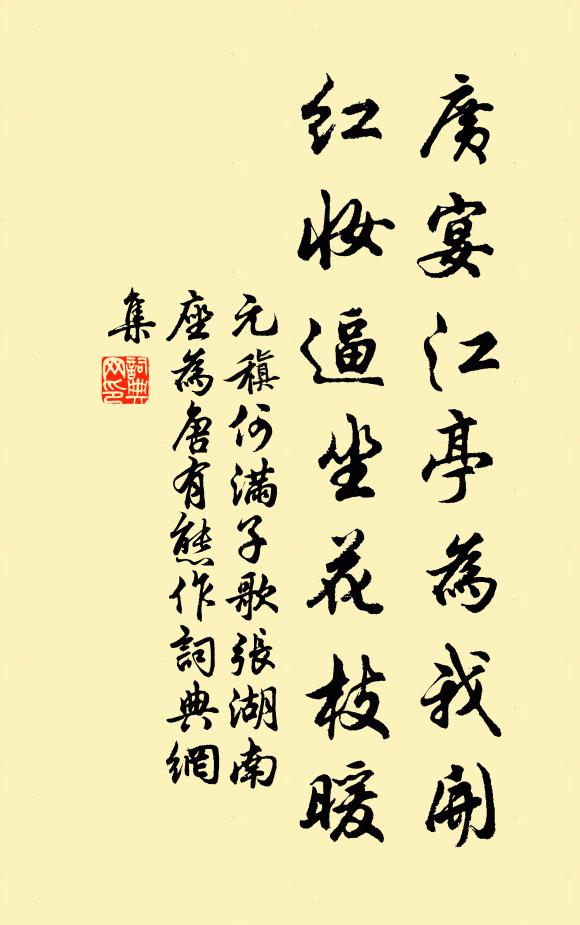 廣宴江亭為我開
紅妝逼坐花枝暖
元稹何滿子歌張湖南
座為唐有熊作詞典網
集
詞典
网印